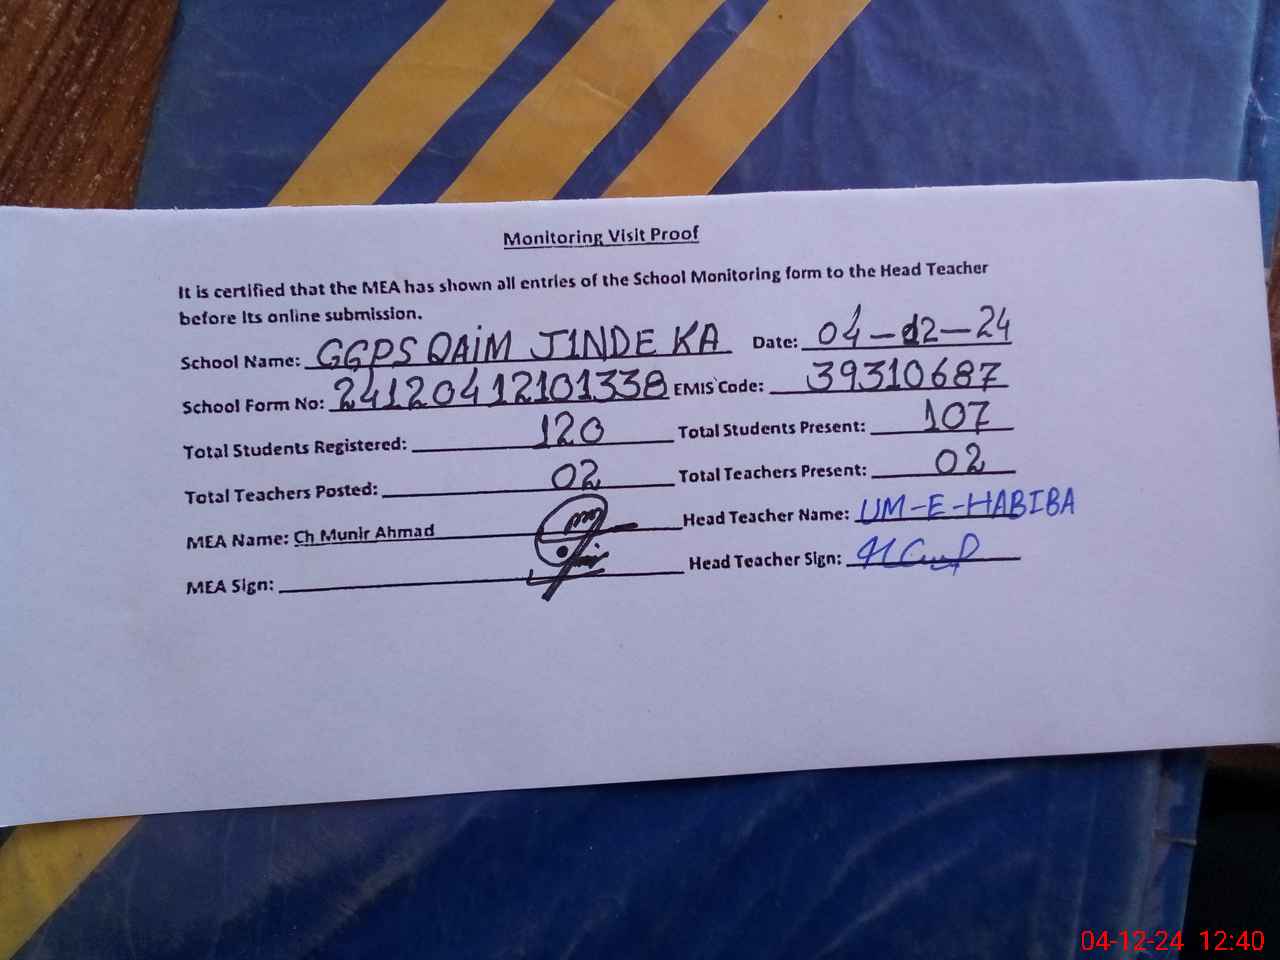 Monitoring Visit Proof
It is certified that the MEA has shown all entries of the School Monitoring form to the Head Teacher
before Its online submission.
School Name: GGPS QAiM J1NDE KA Date: 04-12-24
School Form No: 24120412101338 EMIS Code: 39310687
Total Students Registered: 120 Total Students Present: 107
Total Teachers Posted: 02 Total Teachers Present: 02
MEA Name: Ch Munir Ahmad Head Teacher Name: UM-E-HABIBA
MEA Sign: Head Teacher Sign:
04-12-24 12:40